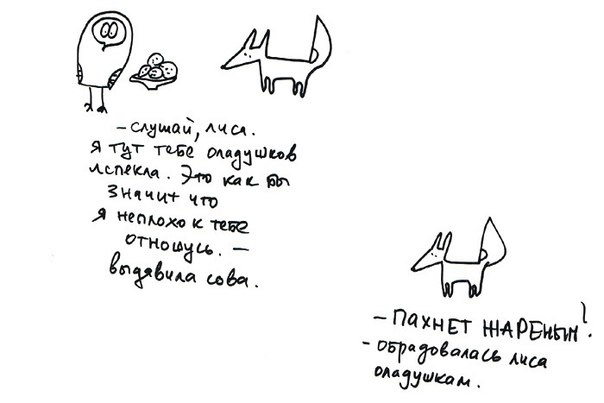 – слушай, лиса.
я тут тебе оладушков
испекла. Это как бы
значит что
я неплохо к тебе
отношусь. –
выдавила сова.
– ПАХНЕТ ЖАРЕНЫМ!
– обрадовалась лиса
оладушкам.